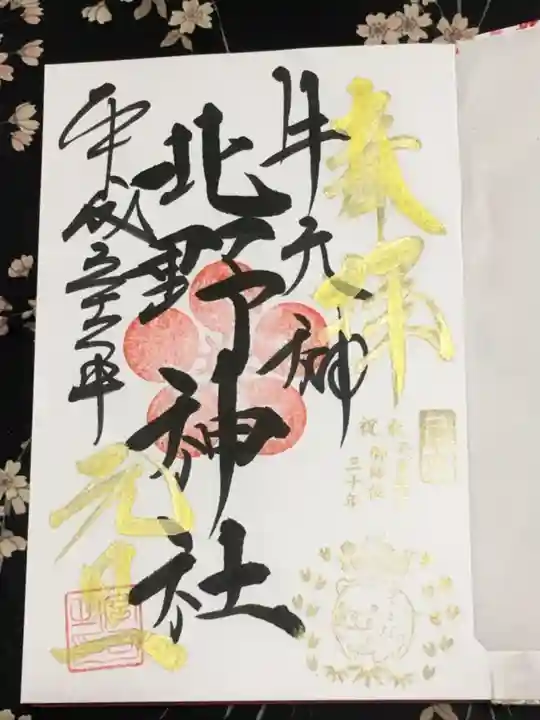 奉拝
牛天神
北野神社
平成三十一年
元旦
祝 御即位
三十年